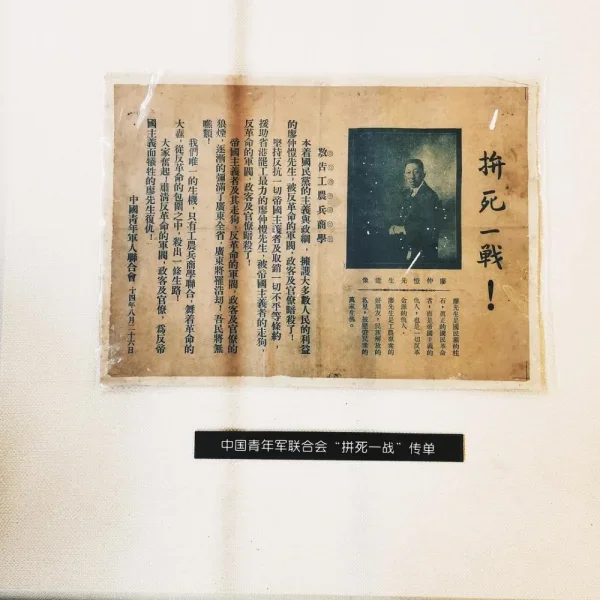 拚死一戰！
廖仲愷先生遺像
廖先生是國民黨的柱
石，真正的國民革命
者，而是帝國主義的
仇人，也是一切反革
命派的仇人。
廖先生是工農羣衆的
好朋友，民族解放的
被壓迫民衆的
萬家生佛。
敬告工農兵商學
本着國民黨的主義與政綱，擁護大多數人民的利益
的廖仲愷先生，被反革命的軍閥，政客及官僚暗殺了！
堅持反抗一切帝國主義者及取銷一切不平等條約，
援助省港罷工最力的廖仲愷先生，被帝國主義者的走狗，
反革命的軍閥，政客及官僚暗殺了！
帝國主義者及其走狗，反革命的軍閥，政客及官僚的
狼煙，逐漸的彌滿了廣東全省，廣東將罹浩劫，吾民將無
噍類！
我們唯一的生機，只有工農兵商學聯合，舞着革命的
大纛，從反革命的包圍之中，殺出一條生路！
大家奮起！肅清反革命的軍閥，政客及官僚，為反帝
國主義而犧牲的廖先生復仇！
中國青年軍人聯合會 十四年八月二十六日
中国青年军联合会“拼死一战”传单